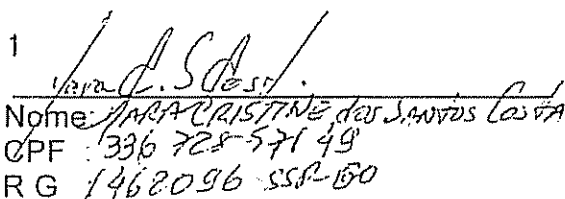 1
Nome: MARA CRISTINE dos SANTOS COSTA
CPF : 336 728-571 49
R G 1462096 SSP-GO